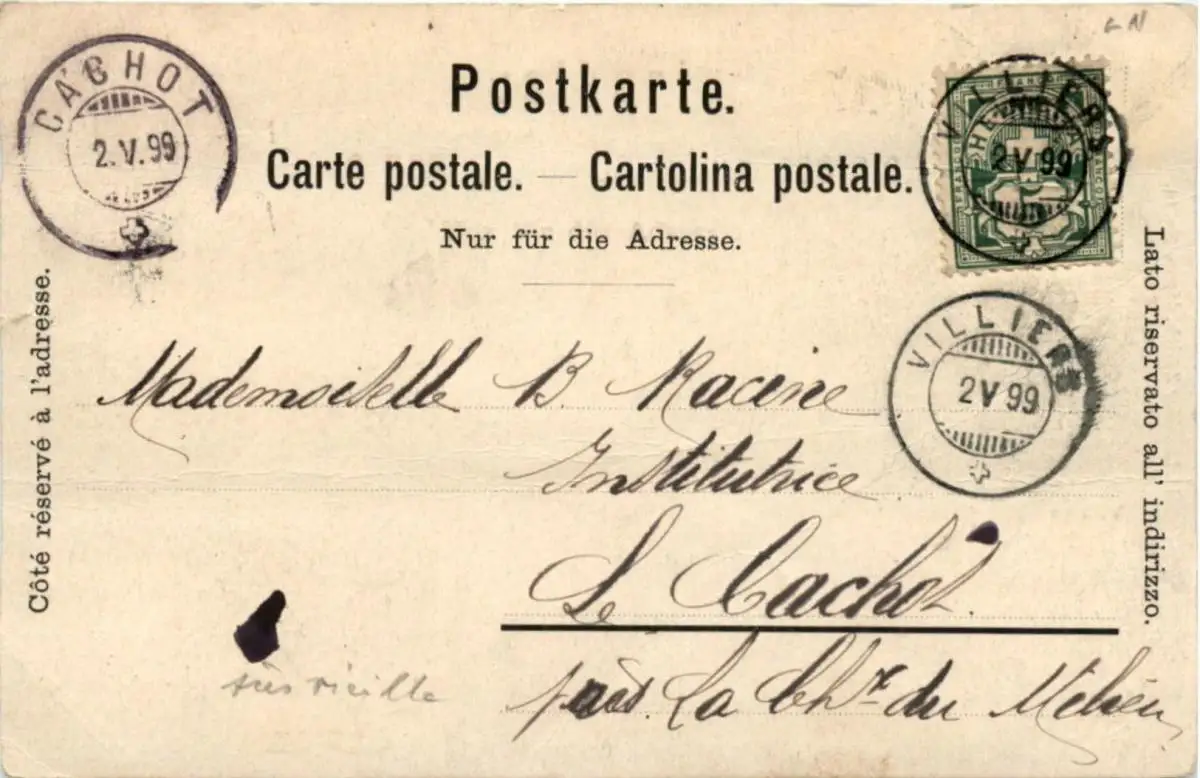 Postkarte.
Carte postale. — Cartolina postale.
Nur für die Adresse.
CACHOT
2.V.99
VILLIERS
2 V 99
VILLIERS
2 V 99
Côté réservé à l'adresse.
Lato riservato all' indirizzo.
Mademoiselle B. Racine
Institutrice
Le Cachot.
près La Chx du Milieu
très vieille